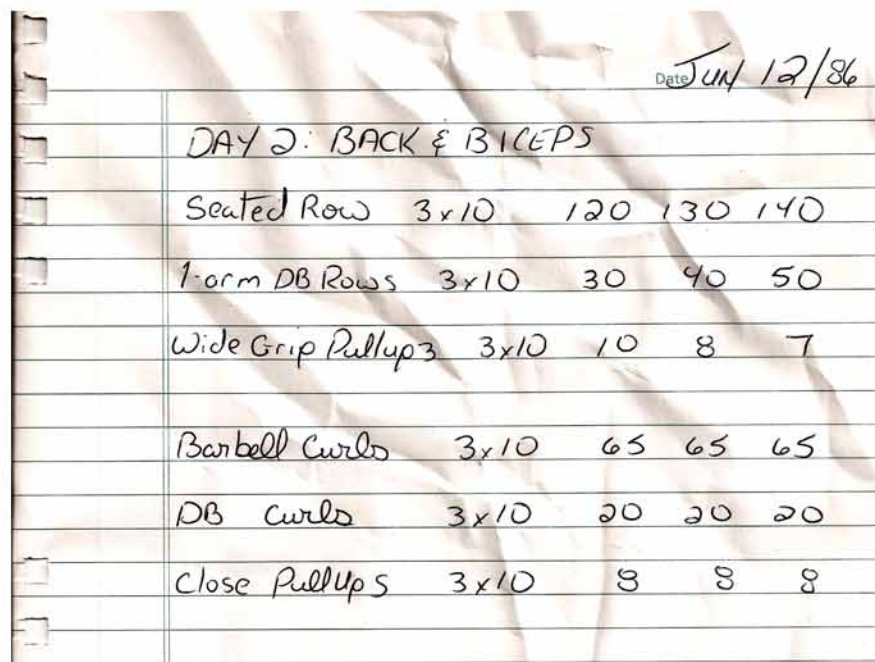 Date JUN 12/86
DAY 2: BACK & BICEPS
Seated Row 3x10 120 130 140
1-arm DB Rows 3x10 30 40 50
Wide Grip Pullups 3x10 10 8 7
Barbell Curls 3x10 65 65 65
DB Curls 3x10 20 20 20
Close Pullups 3x10 8 8 8